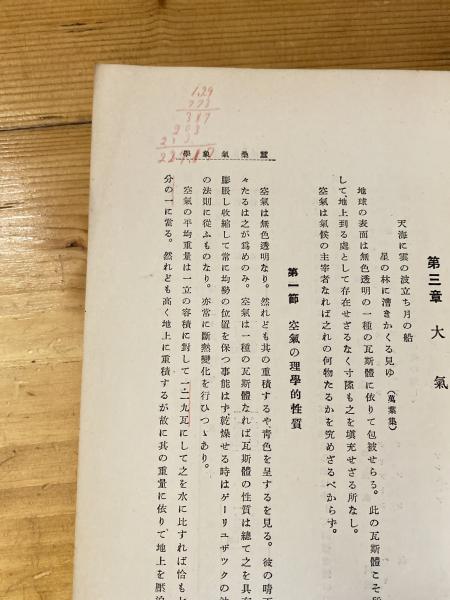 1.29
773
387
903
蠶桑氣象學
第三章 大氣
天海に雲の波立ち月の船
星の林に漕きかくる見ゆ (萬葉集)
地球の表面は無色透明の一種の瓦斯體に依りて包被せらる。此の瓦斯體こそ
して、地上到る處として存在せざるなく寸隙も之を填充せざる所なし。
空氣は氣候の主宰者なれば之れの何物たるかを究めざるべからず。
第一節 空氣の理學的性質
空氣は無色透明なり。然れども其の重積するや靑色を呈するを見る。彼の晴
々たるは之が爲めのみ。空氣は一種の瓦斯體なれば瓦斯體の性質は總て之を具
膨脹し收縮して常に均勢の位置を保つ事能はず、乾燥せる時はゲーリユザツクの
の法則に從ふものなり。亦常に斷熱變化を行ひつゝあり。
空氣の平均重量は一立の容積に對して一・二九瓦にして之を水に比すれば恰も
分の一に當る。然れども高く地上に重積するが故に其の重量に依りて地上を壓